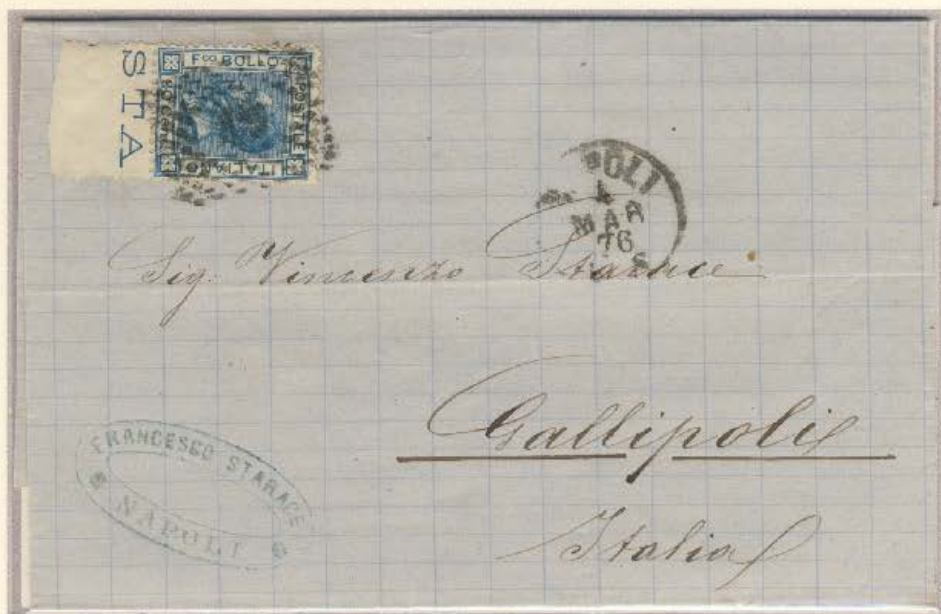 STA
FCO BOLLO
POSTALE
ITALIANO
POLI
4
MAR
76
Sig. Vincenzo Starace
Gallipoli
Italia
FRANCESCO STARACE
NAPOLI